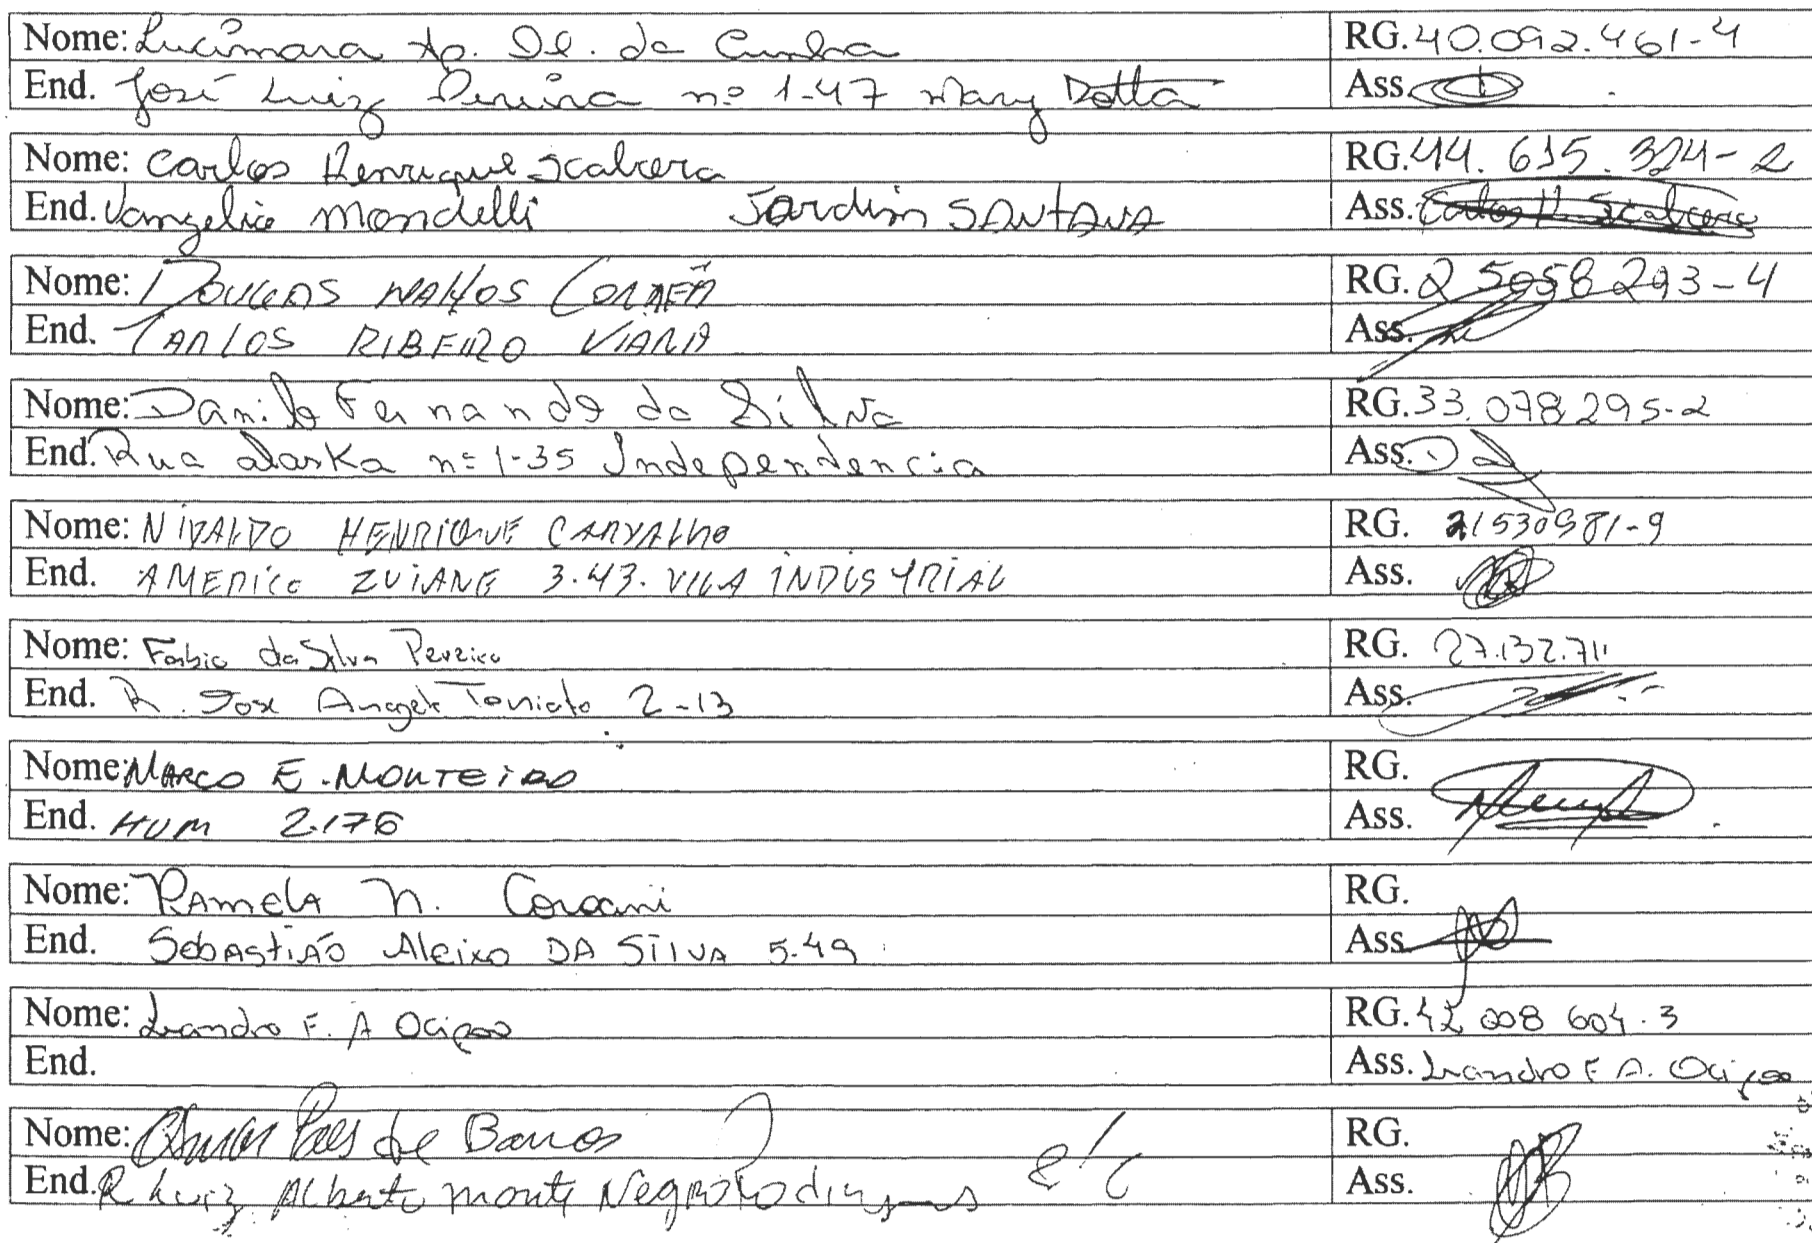 Nome: Lucimara Ap. de. da Cunha RG. 40.092.461-4
End. José Luiz Pereira nº 1-47 Mary Dotta Ass.
Nome: Carlos Henrique Scabera RG. 44.615.324-2
End. Vangelio Mondelli Jardim SANTANA Ass. Carlos H. Scabera
Nome: DOUGLAS CORREA RG. 25058293-4
End. CARLOS RIBEIRO VIANA Ass.
Nome: Danilo Fernando da Silva RG. 33.078.295-2
End. Rua alaska nº 1-35 Independencia Ass.
Nome: NIVALDO HENRIQUE CARVALHO RG. 21530981-9
End. AMERICO ZUIANE 3.43. VILA INDUSTRIAL Ass.
Nome: Fabio da Silva Pereira RG. 27.132.711
End. R. Jose Angelo Toniato 2-13 Ass.
Nome: MARCO E. MONTEIRO RG.
End. HUM 2.176 Ass.
Nome: PAMELA N. RG.
End. SEBASTIÃO Aleixo DA SILVA 5-49 Ass.
Nome: Leandro F. A RG. 42 008 604-3
End. Ass. Leandro F A.
Nome: Paes de Barros RG.
End. R Luiz Alberto monte Negro Rodrigues Ass.